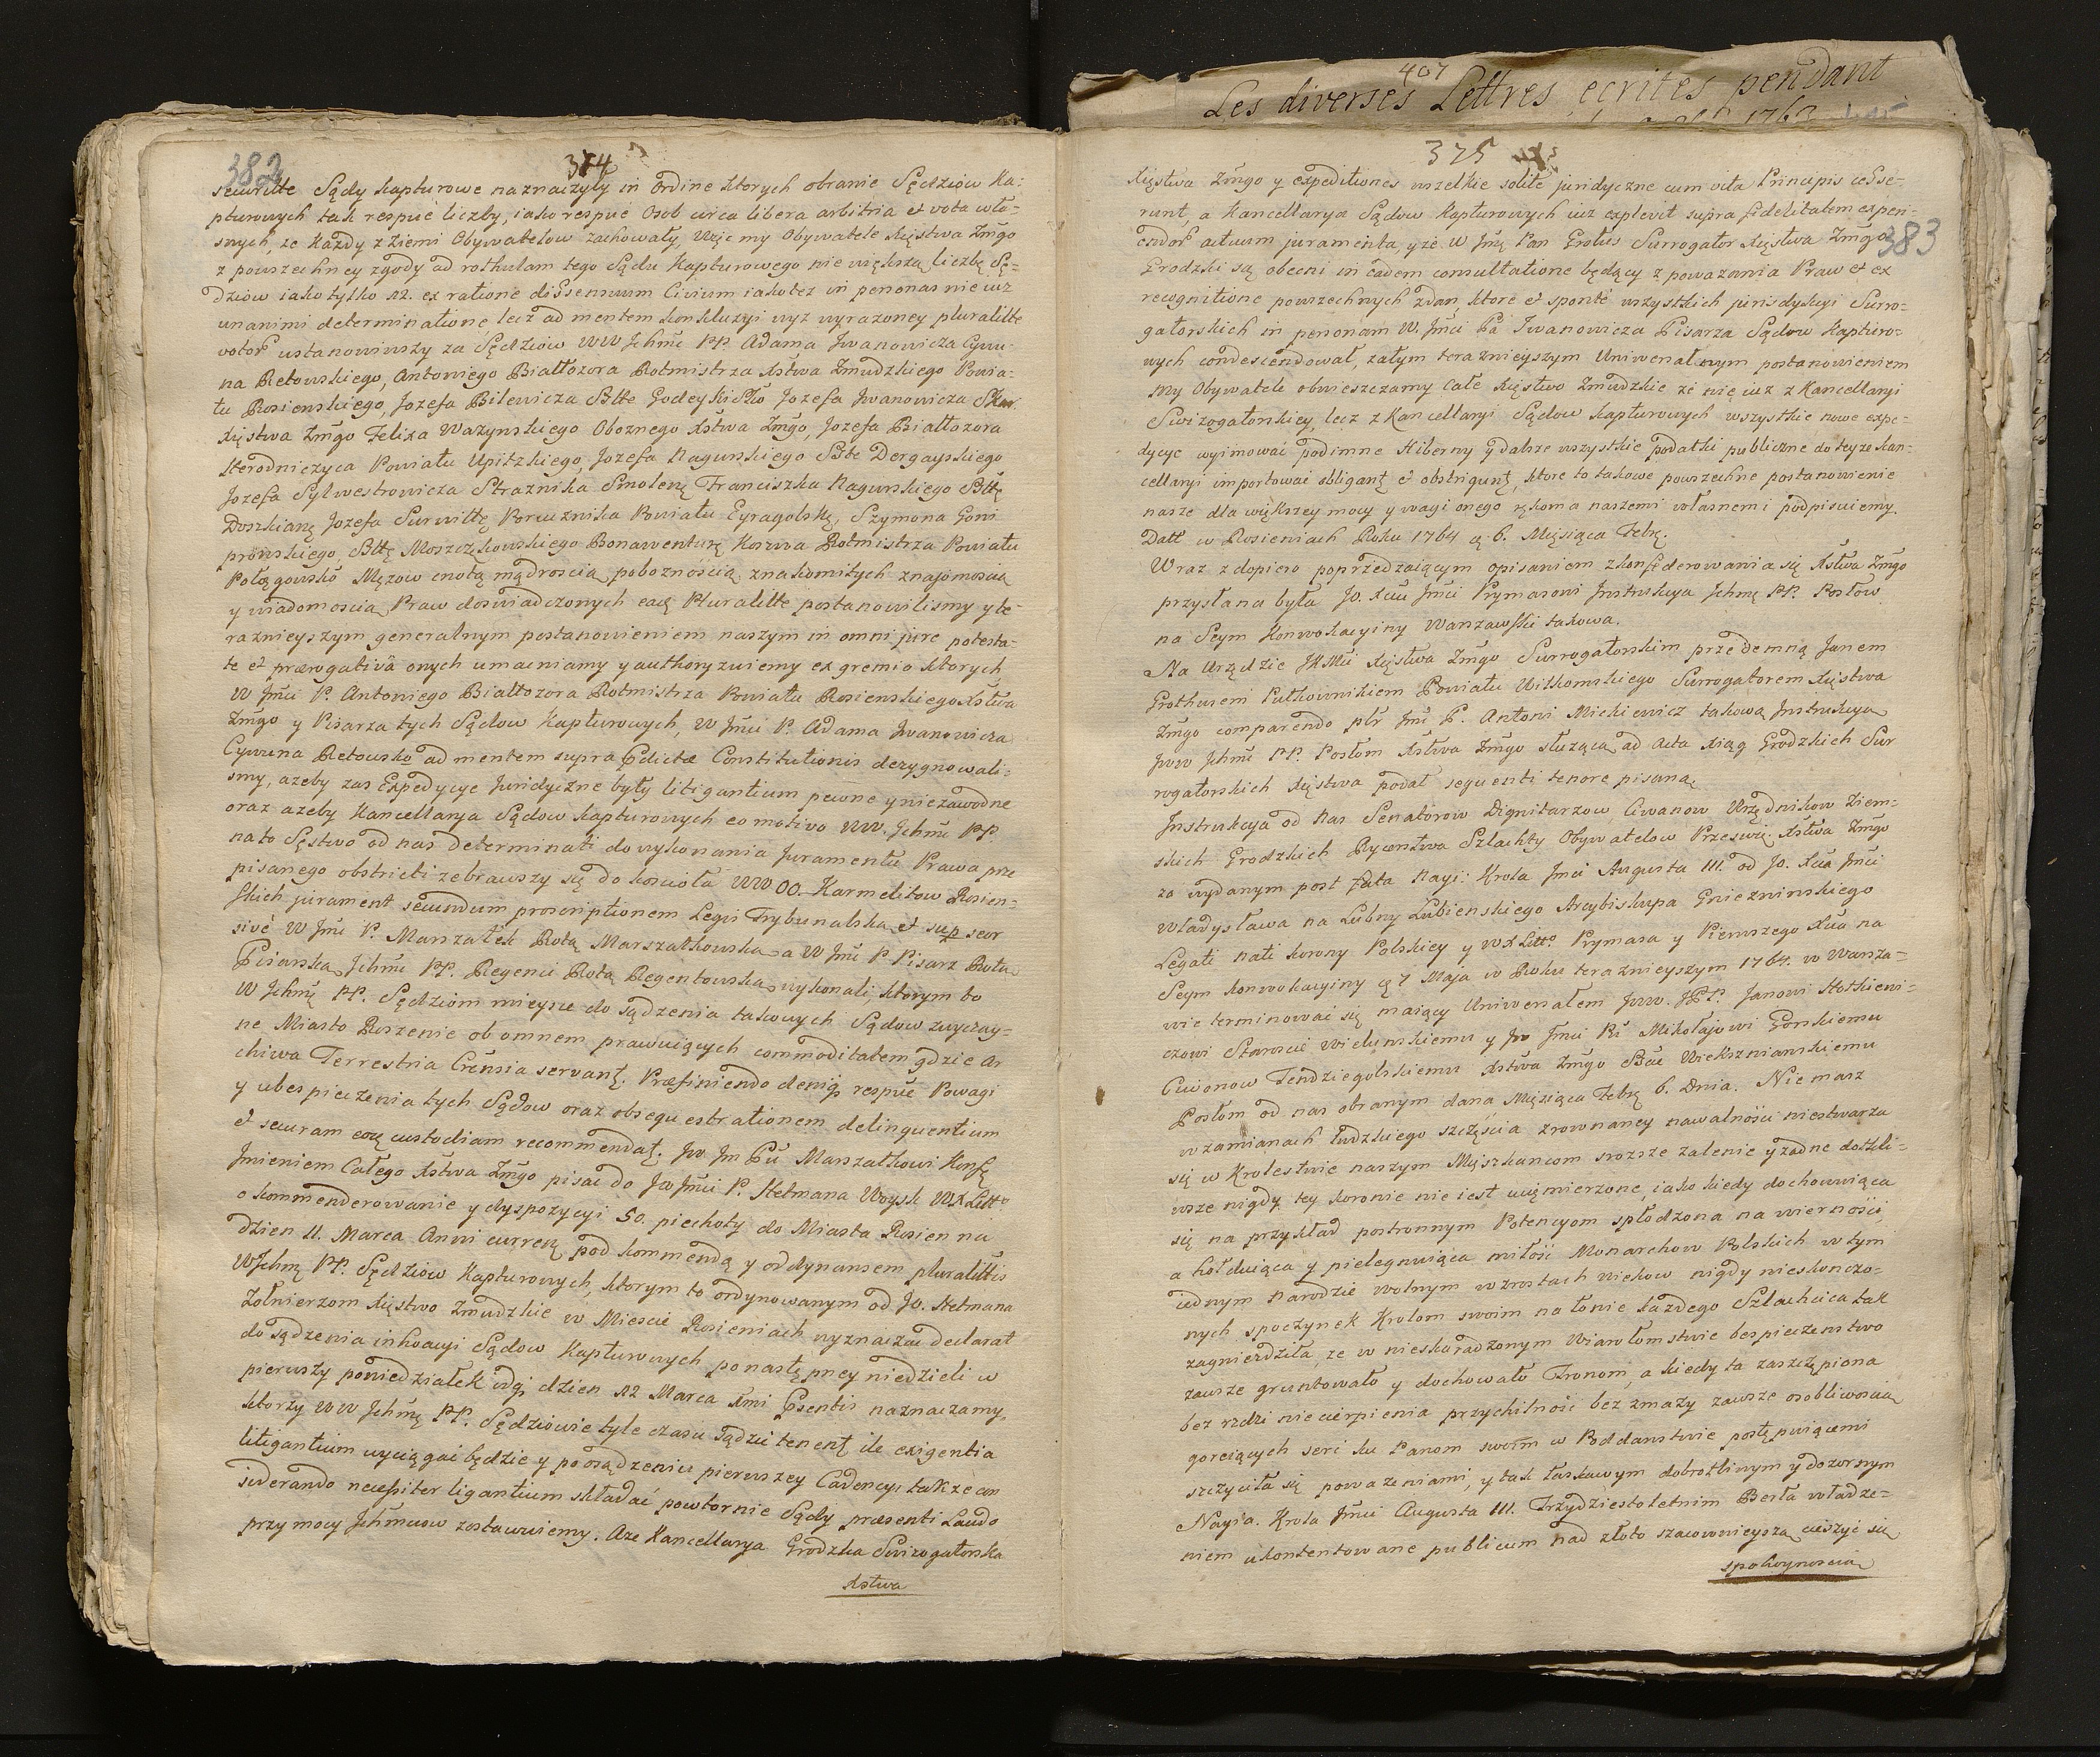 382
374
securitte Sądy kapturowe naznaczyły in ordine ktorych obranie Sędziow Ka:
pturowych tak respué liczby, iako respué Osob circa libera arbitria et vota wło-
snych, ze Kazdy z Ziemi Obywatelow zachowały, Więc my Obywatele Xięstwa Zmgo
z powszechney zgody ad rothulam tego Sądu Kapturowego nie większą liczbę Sę-
dziow iako tylko 12. ex ratione dissensuum Civium iako tez in personas nie iuz
unanimi determinatione, lecz ad mentem konkluzyi wyz wyrazoney pluralitte
votor ustanowiwszy za Sędziow WW Jchmć PP. Adama Jwanowicza Cywu-
na Retowskiego, Antoniego Białłozora Rotmistrza Xstwa Zmudzkiego Powia-
tu Rosienskiego, Jozefa Bilewicza Sttę Godeyki Jozefa Jwanowicza
Xięstwa Zmgo Felixa Wazynskiego Oboznego Xstwa Zmgo, Jozefa Białłozora
Horodniczyca Powiatu Upitzkiego, Jozefa Nagurskiego Sttę Dergayskiego
Jozefa Sylwestrowicza Straznika Smolenę Franciszka Nagurskiego Sttę
Doszkianę Jozefa Surwiłłę Porucznika Powiatu Eyragolskę, Szymona Goni
prowskiego Sttę Moszczykowskiego Bonawenturę Korewa Rotmistrza Powiatu
Połągowsko Męzow cnotą mądroscią poboznością znakomitych znajomoscią
y wiadomoscią Praw doswiadczonych eaq Pluralitte postanowilismy y te-
raznieyszym generalnym postanowieniem naszym in omni jure potesta-
te et prærogativâ onych umacniamy y authoryzuiemy ex gremio ktorych
W Jmci P. Antoniego Białłozora Rotmistrza Powiatu Rosienskiego Xstwa
Zmgo y Pisarza tych Sądow Kapturowych, W Jmci P. Adama Jwanowicza
Cywuna Retowsko ad mentem supra Pdictæ Constitutionis dezygnowali-
smy, azeby zas Expedycye Juridyczne były litigantium pewne y niezawodne
oraz azeby Kancellarya Sądow Kapturowych eo motivo WW. Jchmć PP.
na to Sęstwo od nas determinati do wykonania Juramentu Prawa prze
pisanego obstricti zebrawszy się do koscioła WW OO. Karmelitow Rosien-
skich jurament secundum proscriptionem Legis Trybunalską et sup seor
sivè W Jmć P. Marszałek Rotą Marszałkowską a W Jmć P Pisarz Rotą
Pisarską Jchmć PP. Regenci Rotą Regentowską wykonali, ktorym to
W Jchmę PP. Sędziom mieysce do sądzenia takowych Sądow zwyczay-
ne Miasto Roszenie ob omnem prawuiących commoditatem gdzie Ar
chiwa Terrestria Crensia servant. Præfiniendo deniq respué Powagi
y ubespieczenia tych Sądow oraz obsequestrationem delinquentium
et securam eorę custodiam recommendat. Jw Jm Pu Marszałkowi Konfę
Jmieniem Całego Xstwa Zmgo pisać do Jw Jmci P. Hetmana Woysk WXLitto
o kommenderowanie y dyspozycyi 50. piechoty do Miasta Rosien na
dzien 11. Marca Anni curren pod kommendą y ordynansem pluralittis
WJchmę PP. Sędziow Kapturowych, ktorym to ordynowanym od Jw. Hetmana
Zołnierzom Xięstwo Zmudzkie w Miescie Rosieniach wyznacza declarat
do sądzenia inhoacyi Sądow Kapturowych ponastępney niedzieli w
pierwszy poniedziałek idq dzien 12 Marca Ami Psentis naznaczamy,
ktorzy WW Jchmę PP. Sędziowie tyle czasu sądzić tenent ile exigentia
litigantium wyciągać będzie y po osądzeniu pierwszey Cadencyi takze con
siderando necessiter ligantium składać powtornie Sądy præsenti Laudo
przy mocy Jchmciow zostawuiemy. Aze Kancellarya Grodzka Swizogatorska
Xstwa
407
Les diverses Lettres ecrites pendant
1763
375
383
Xięstwa Zmgo y expeditiones wszelkie solite juridyczne cum vita Principis cesse-
runt, a Kancellarya Sądow Kapturowych iuz explevit supra fidelitatem expen-
endor actuum juramenta, y ze W Jmę Pan Grotus Surrogator Xięstwa Zmgo
Grodzki są obecni in eadem consultatione będący z powazania Praw et ex
recognitione powszechnych zdan, ktore et sponté wszystkich jurisdykcyi Surro-
gatorskich in personam W. Jmci Pa Jwanowicza Pisarza Sądow Kapturo-
wych condescendował, zatym teraznieyszym Uniwersalnym postanowieniem
My Obywatele obwieszczamy całe Xięstwo Zmudzkie ze nie iuz z Kancellaryi
Swizogatorskiey, lecz z Kancellaryi Sądow Kapturowych wszystkie nowe expe-
dycye wyimować podimne Hiberny y dalsze wszystkie podatki publiczne do teyze kan-
cellaryi importować obligant et obstrigunt, ktore to takowe powszechne postanowienie
nasze dla większey mocy y wagi onego rękoma naszemi własnemi podpisuiemy.
Datt w Rosieniach Roku 1764 ą 6. Mięsiąca Febrę.
Wraz z dopiero poprzedzaiącym opisaniem zkonfiderowania się Xstwa Zmgo
przysłana była Jo. Xciu Jmci Prymasowi Instrukcya Jchmę PP. Posłow
na Seym Konwokacyiny Warszawski takowa.
Na Urzędzie JKMci Xięstwa Zmgo Surrogatorskim przedemną Janem
Grothusem Pułkownikiem Powiatu Wiłkomskiego Surrogatorem Xięstwa
Zmgo comparendo plr Jmć P. Antoni Mickiewicz takową Instrukcyą
Jww Jchmć PP. Posłom Xstwa Zmgo słuzącą ad Acta Xiąg Grodzkich Sur
rogatorskich Xięstwa podał sequenti tenore pisaną
Jnstrukcya od Nas Senatorow Dignitarzow, Ciwunow Urzędnikow Ziem-
skich Grodzkich Rycerstwa Szlachty Obywatelow Przeswię. Xstwa Zmgo
za wydanym post fata Nayi: Krola Jmci Augusta III. od Jo. Xcia Jmci
Władysława na Łubny Łubienskiego Arcybiskupa Gniezninskiego
Legati nati korony Polskiey y WXLitto Prymasa y Pierwszego Xcia na
Seym konwokacyiny ą 7 Maja w Roku teraznieyszym 1764. w Warsza-
wie terminować się maiący Uniwersałem Jww. JPP. Janowi Hotkiewi-
czowi Staroscie Wielunskiemu y Jw Jmci Pu Mikołajowi Gorskiemu
Ciwonow Tendziegolskiemu Xstwa Zmgo Stcie Wiekszniańskiemu
Posłom od nas obranym dana Mięsiąca Febrę 6. Dnia. Nie masz
w zamianach ludzkiego szczęścia zrownaney nawalności niestwarza
się w Krolestwie naszym Mięszkańcom srozsze zalenie y zadne dotkli-
wsze nigdy tey koronie nie iest wymierzone, iako kiedy dochowuiąca
się na przykład postronnym Potencyom spłodzona na wierności,
a hołduiąca y pielegnuiąca miłość Monarchow Polskich w tym
iednym Narodzie wolnym w zrostach wiekow nigdy nieskończo-
nych spoczynek Krolom swoim na łonie kazdego Szlachcica tak
zagnieździła, ze w nieskaradzonym Wiarołomstwie bespieczenstwo
zawsze gruntowało y dochowało Tronom, a kiedy ta zaszczepiona
bez rzdzi niecierpienia przychilność bez zmazy zawsze osobliwoscią
gorejących serc ku Panom swoim w Poddanstwie postępuiącemi
szczyciła się powazeniami, y tak łaskawym dobrotliwym y dozornym
Nayia. Krola Jmci Augusta III. Trzydziestoletnim Berła władze-
niem ukontentowane publicum nad złoto szacownieyszą cieszyć się
spokoynoscią